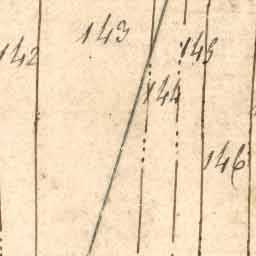 142
143
144
145
146